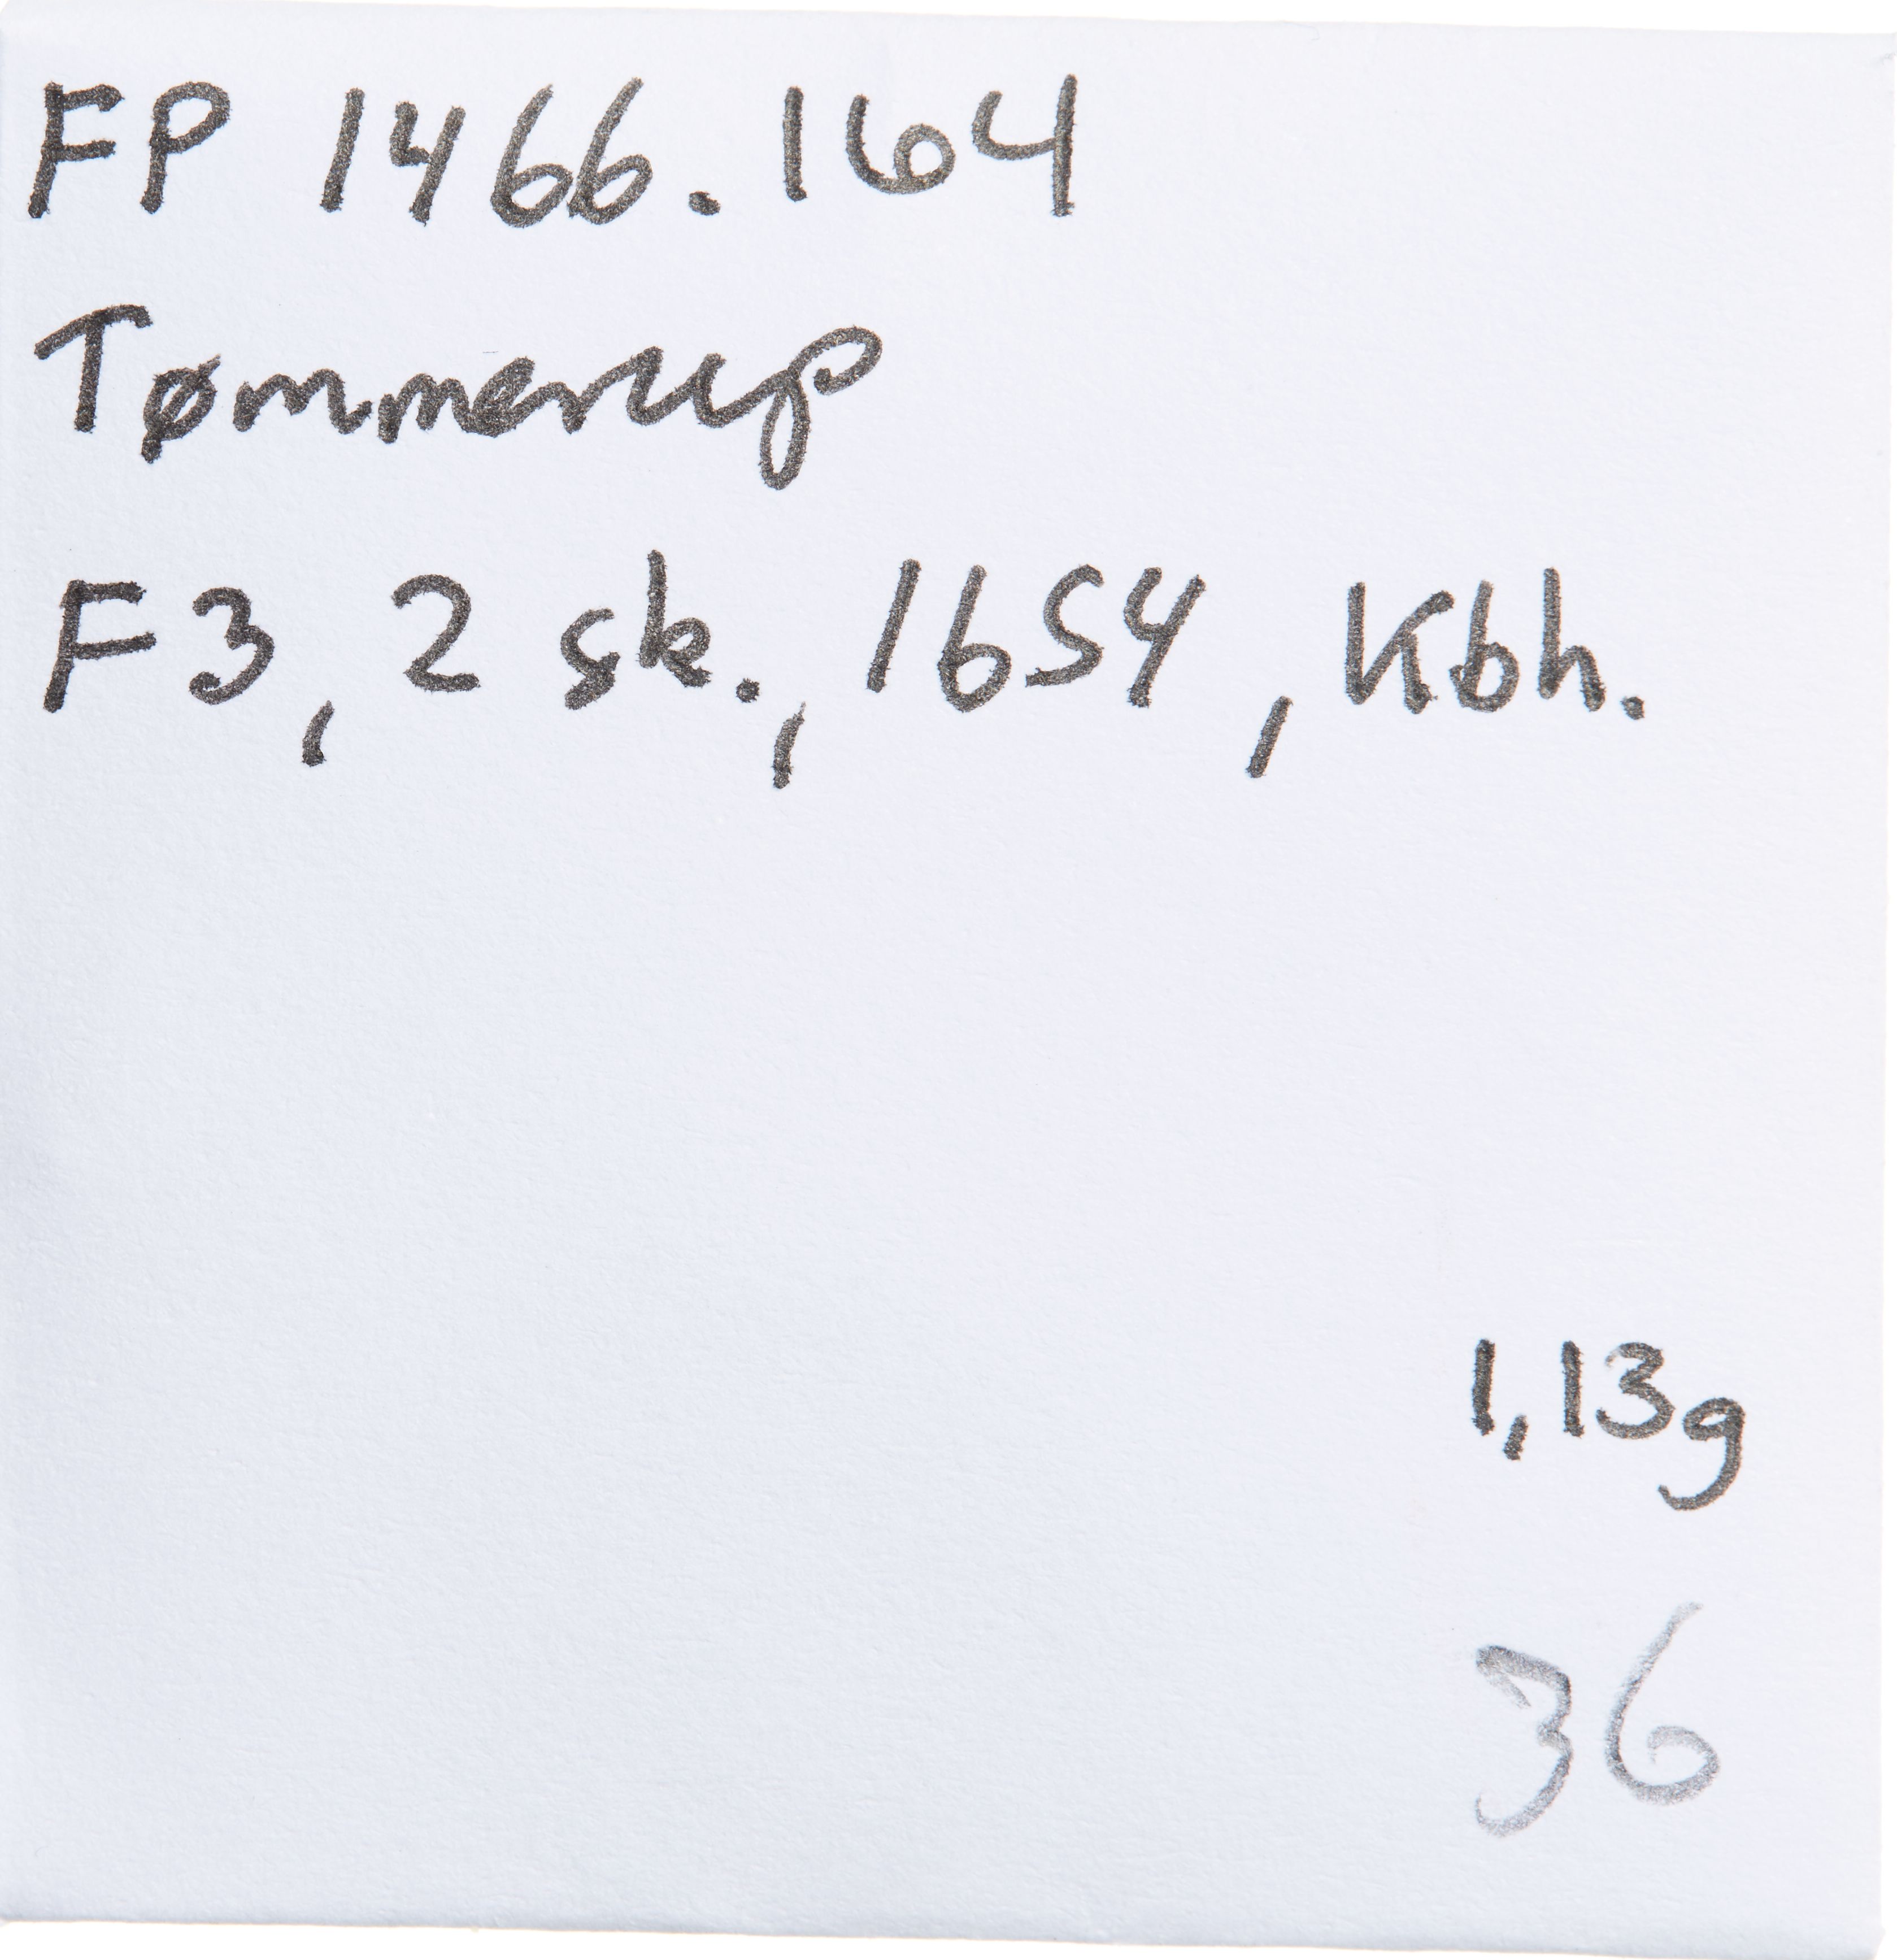 FP 1466.164
Tømmerup
F3, 2 sk., 1654, Kbh.
1,13g
36